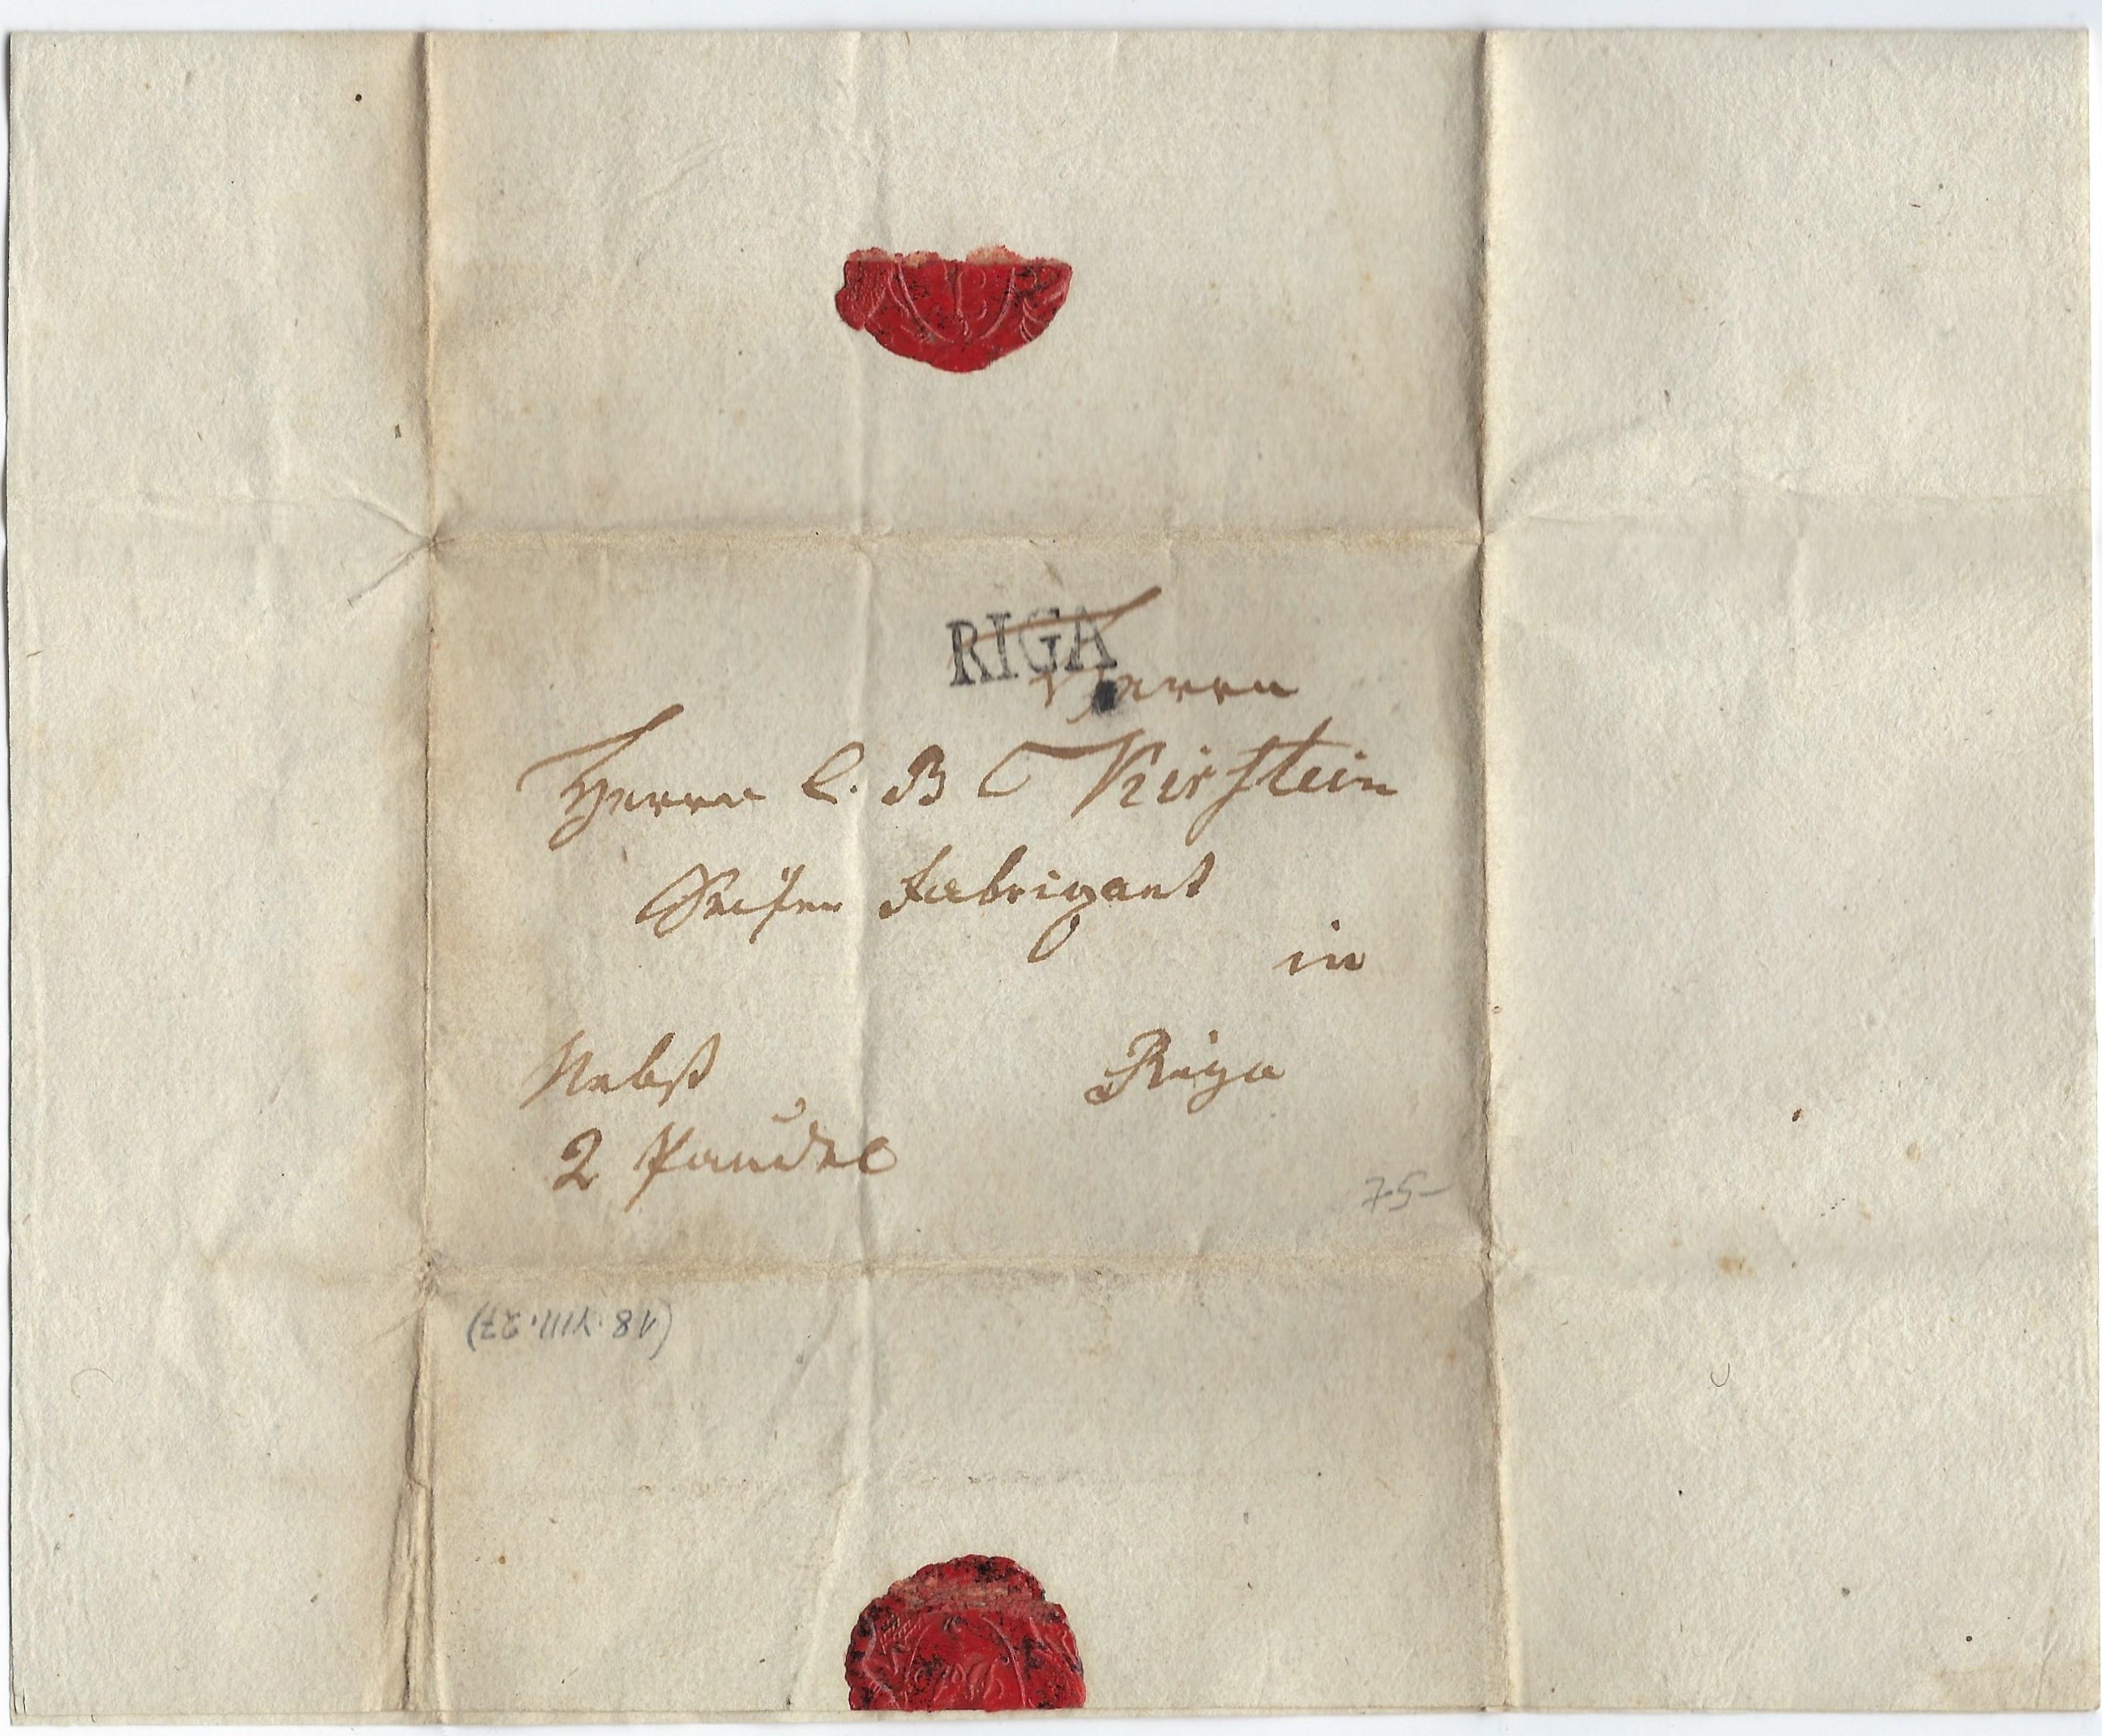 RIGA
Herrn
Herrn C. B Kirstein
Seifen Fabrigant
in
Nebst
Riga
2
75-
(18.VIII.27)